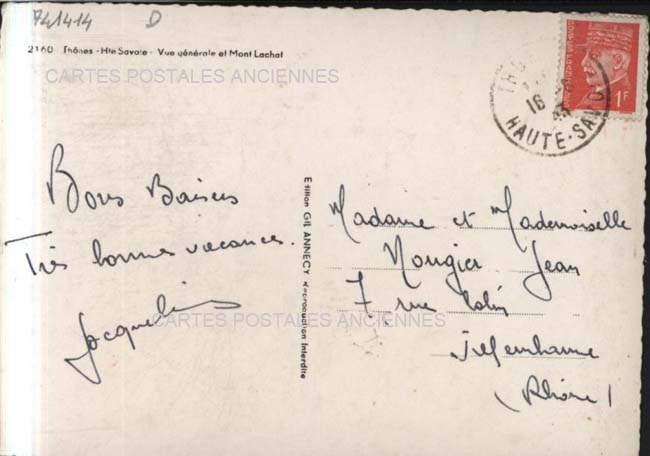 741414 D
2160 Thônes - Hte Savoie - Vue générale et Mont Lachat
CARTES POSTALES ANCIENNES
THO
16
HAUTE-SAVO
1F
Bons Baisers
Très bonnes vacances.
Jacqueline
Edition GIL ANNECY Reproduction Interdite
Madame et Mademoiselle
Nougier Jean
7 rue Colin
Villeurbanne
(Rhône)
CARTES POSTALES ANCIENNES